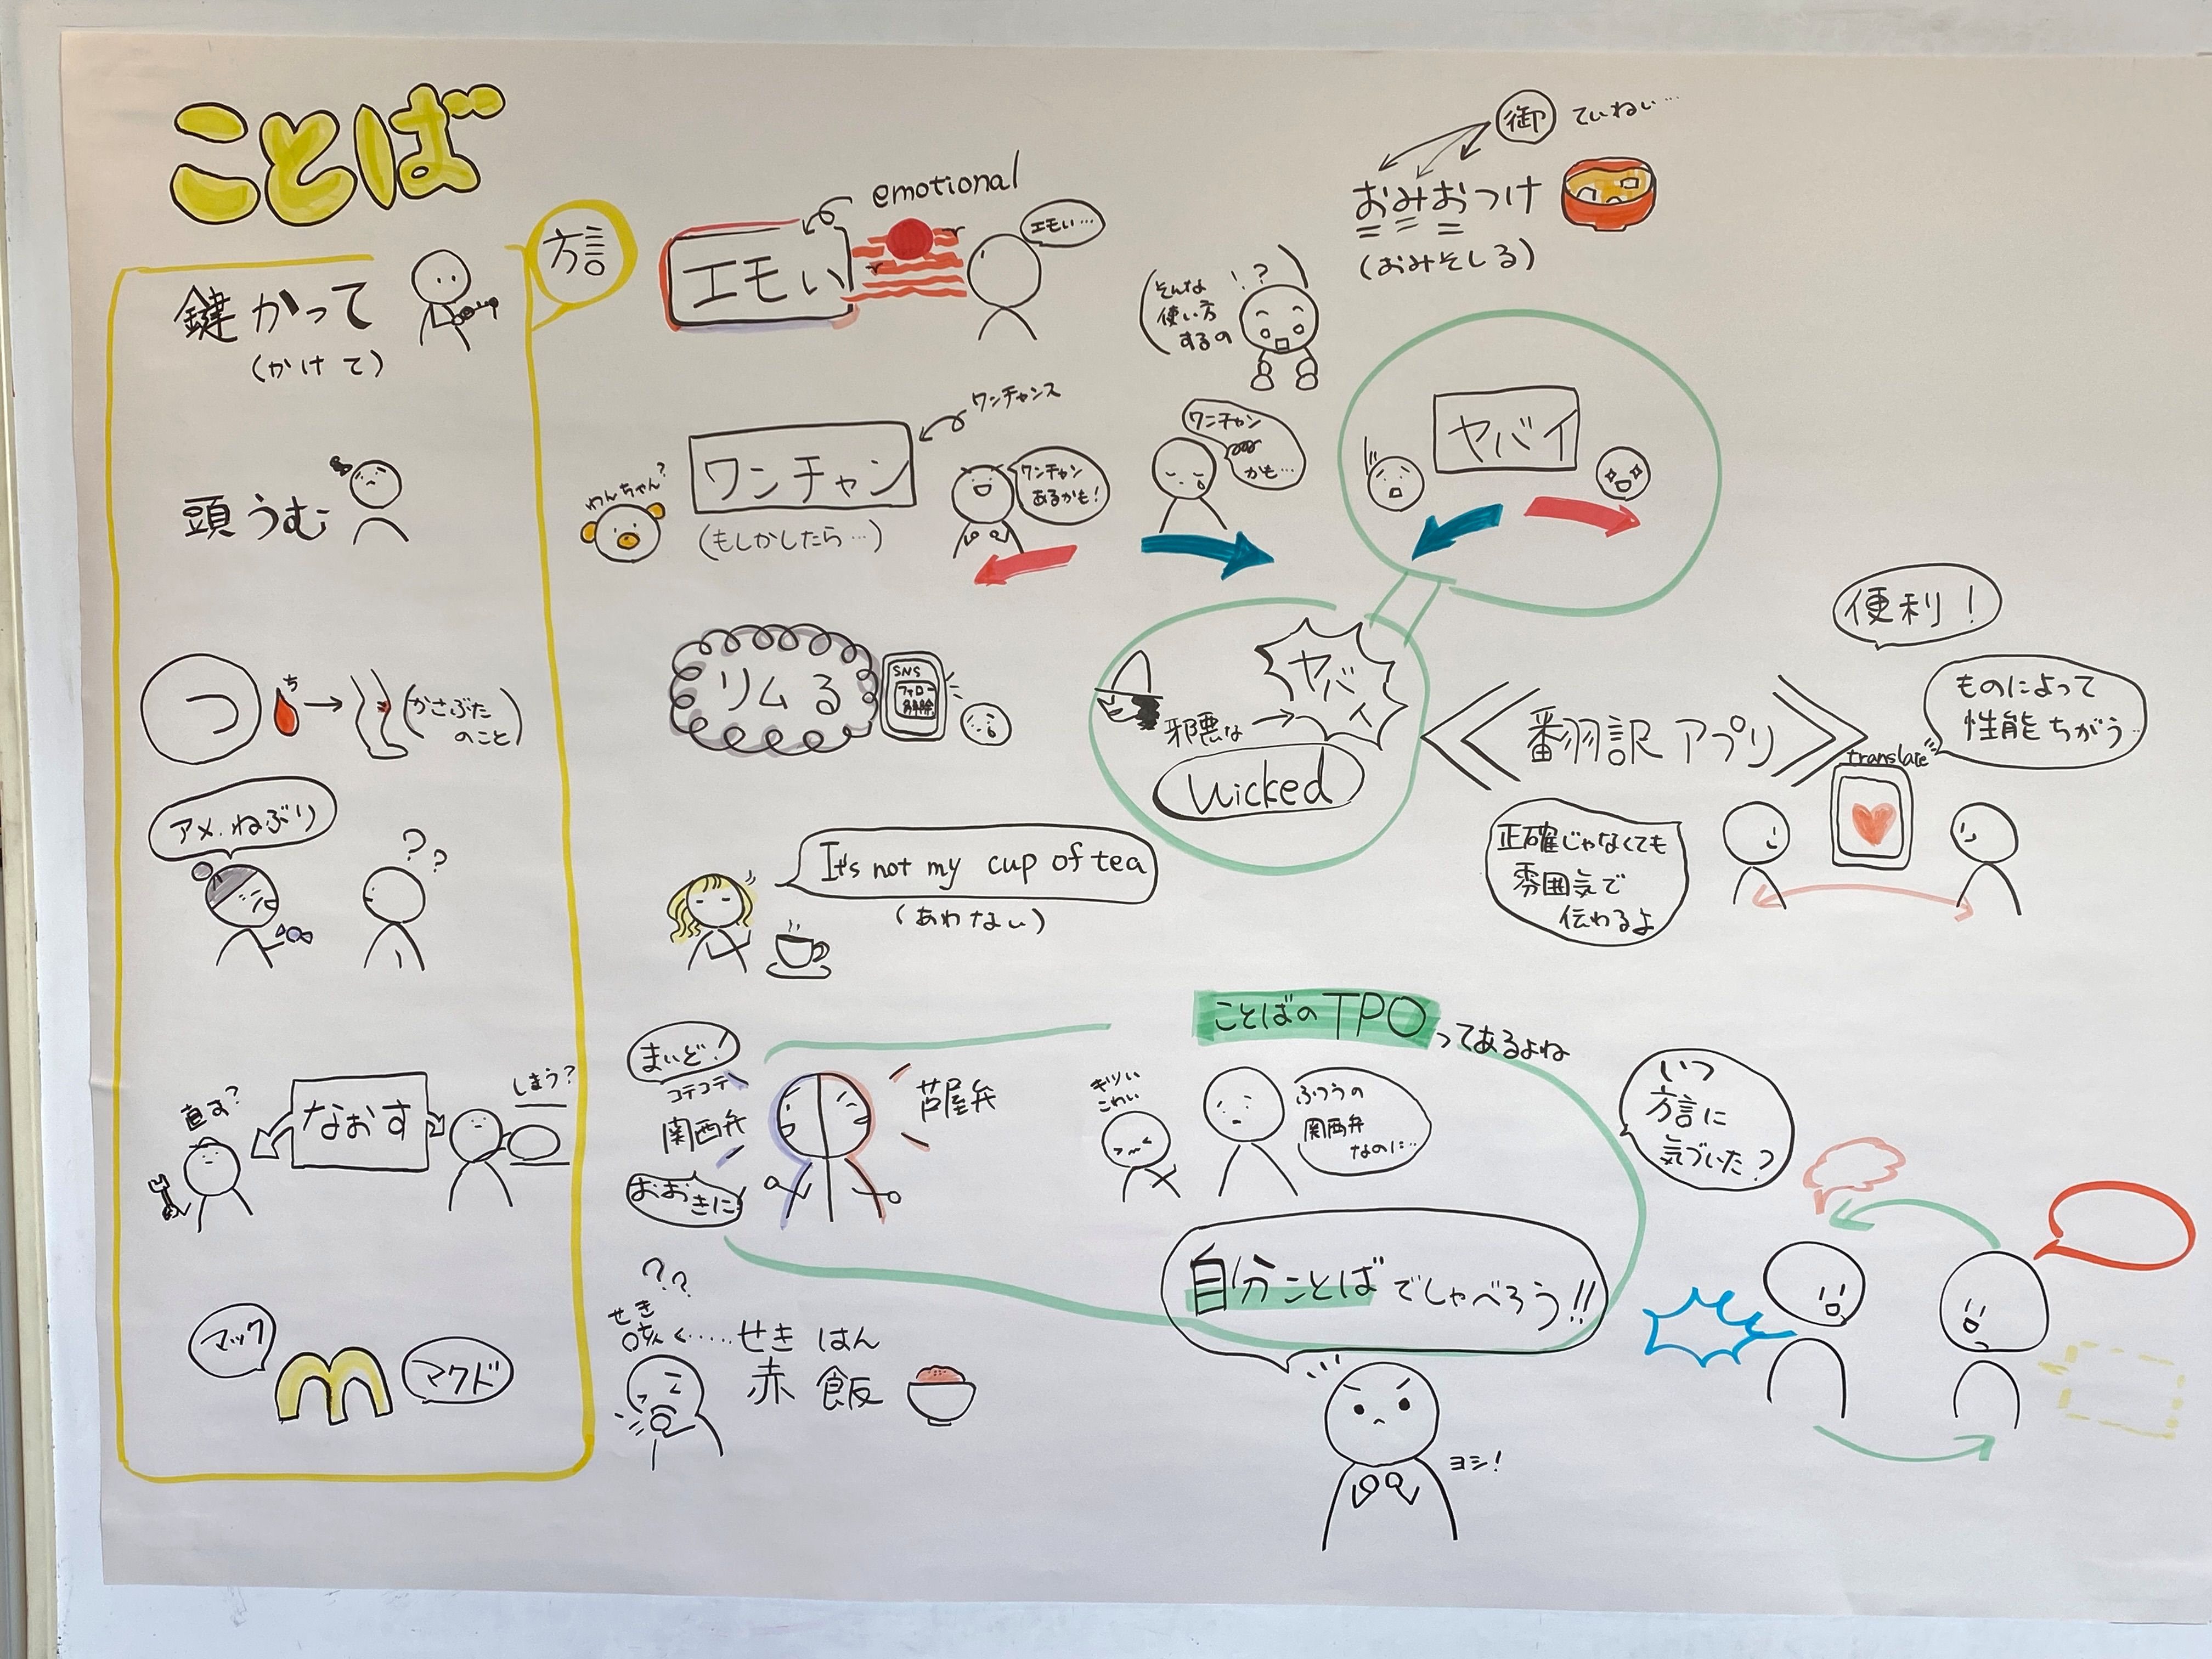 ことば
方言
鍵かって
(かけて)
頭うむ
つ
ち
(かさぶた
のこと)
アメ.ねぶり
??
直す?
なおす
しまう?
マック
m
マクド
emotional
エモい
エモい…
御 ていねい…
おみおつけ
(おみそしる)
そんな
使い方
するの
!?
ワンチャンス
わんちゃん?
ワンチャン
(もしかしたら…)
ワンチャン
あるかも!
ワンチャン
かも…
ヤバイ
リムる
SNS
フォロー
解除
ヤバイ
邪悪な
Wicked
It's not my cup of tea
(あわない)
翻訳アプリ
便利!
ものによって
性能ちがう
translate
正確じゃなくても
雰囲気で
伝わるよ
ことばのTPOってあるよね
まいど!
コテコテ
関西弁
おおきに
芦屋弁
ギリい
こわい
ふつうの
関西弁
なのに…
自分ことばでしゃべろう!!
ヨシ!
いつ
方言に
気づいた?
??
せき
咳く……せきはん
赤飯